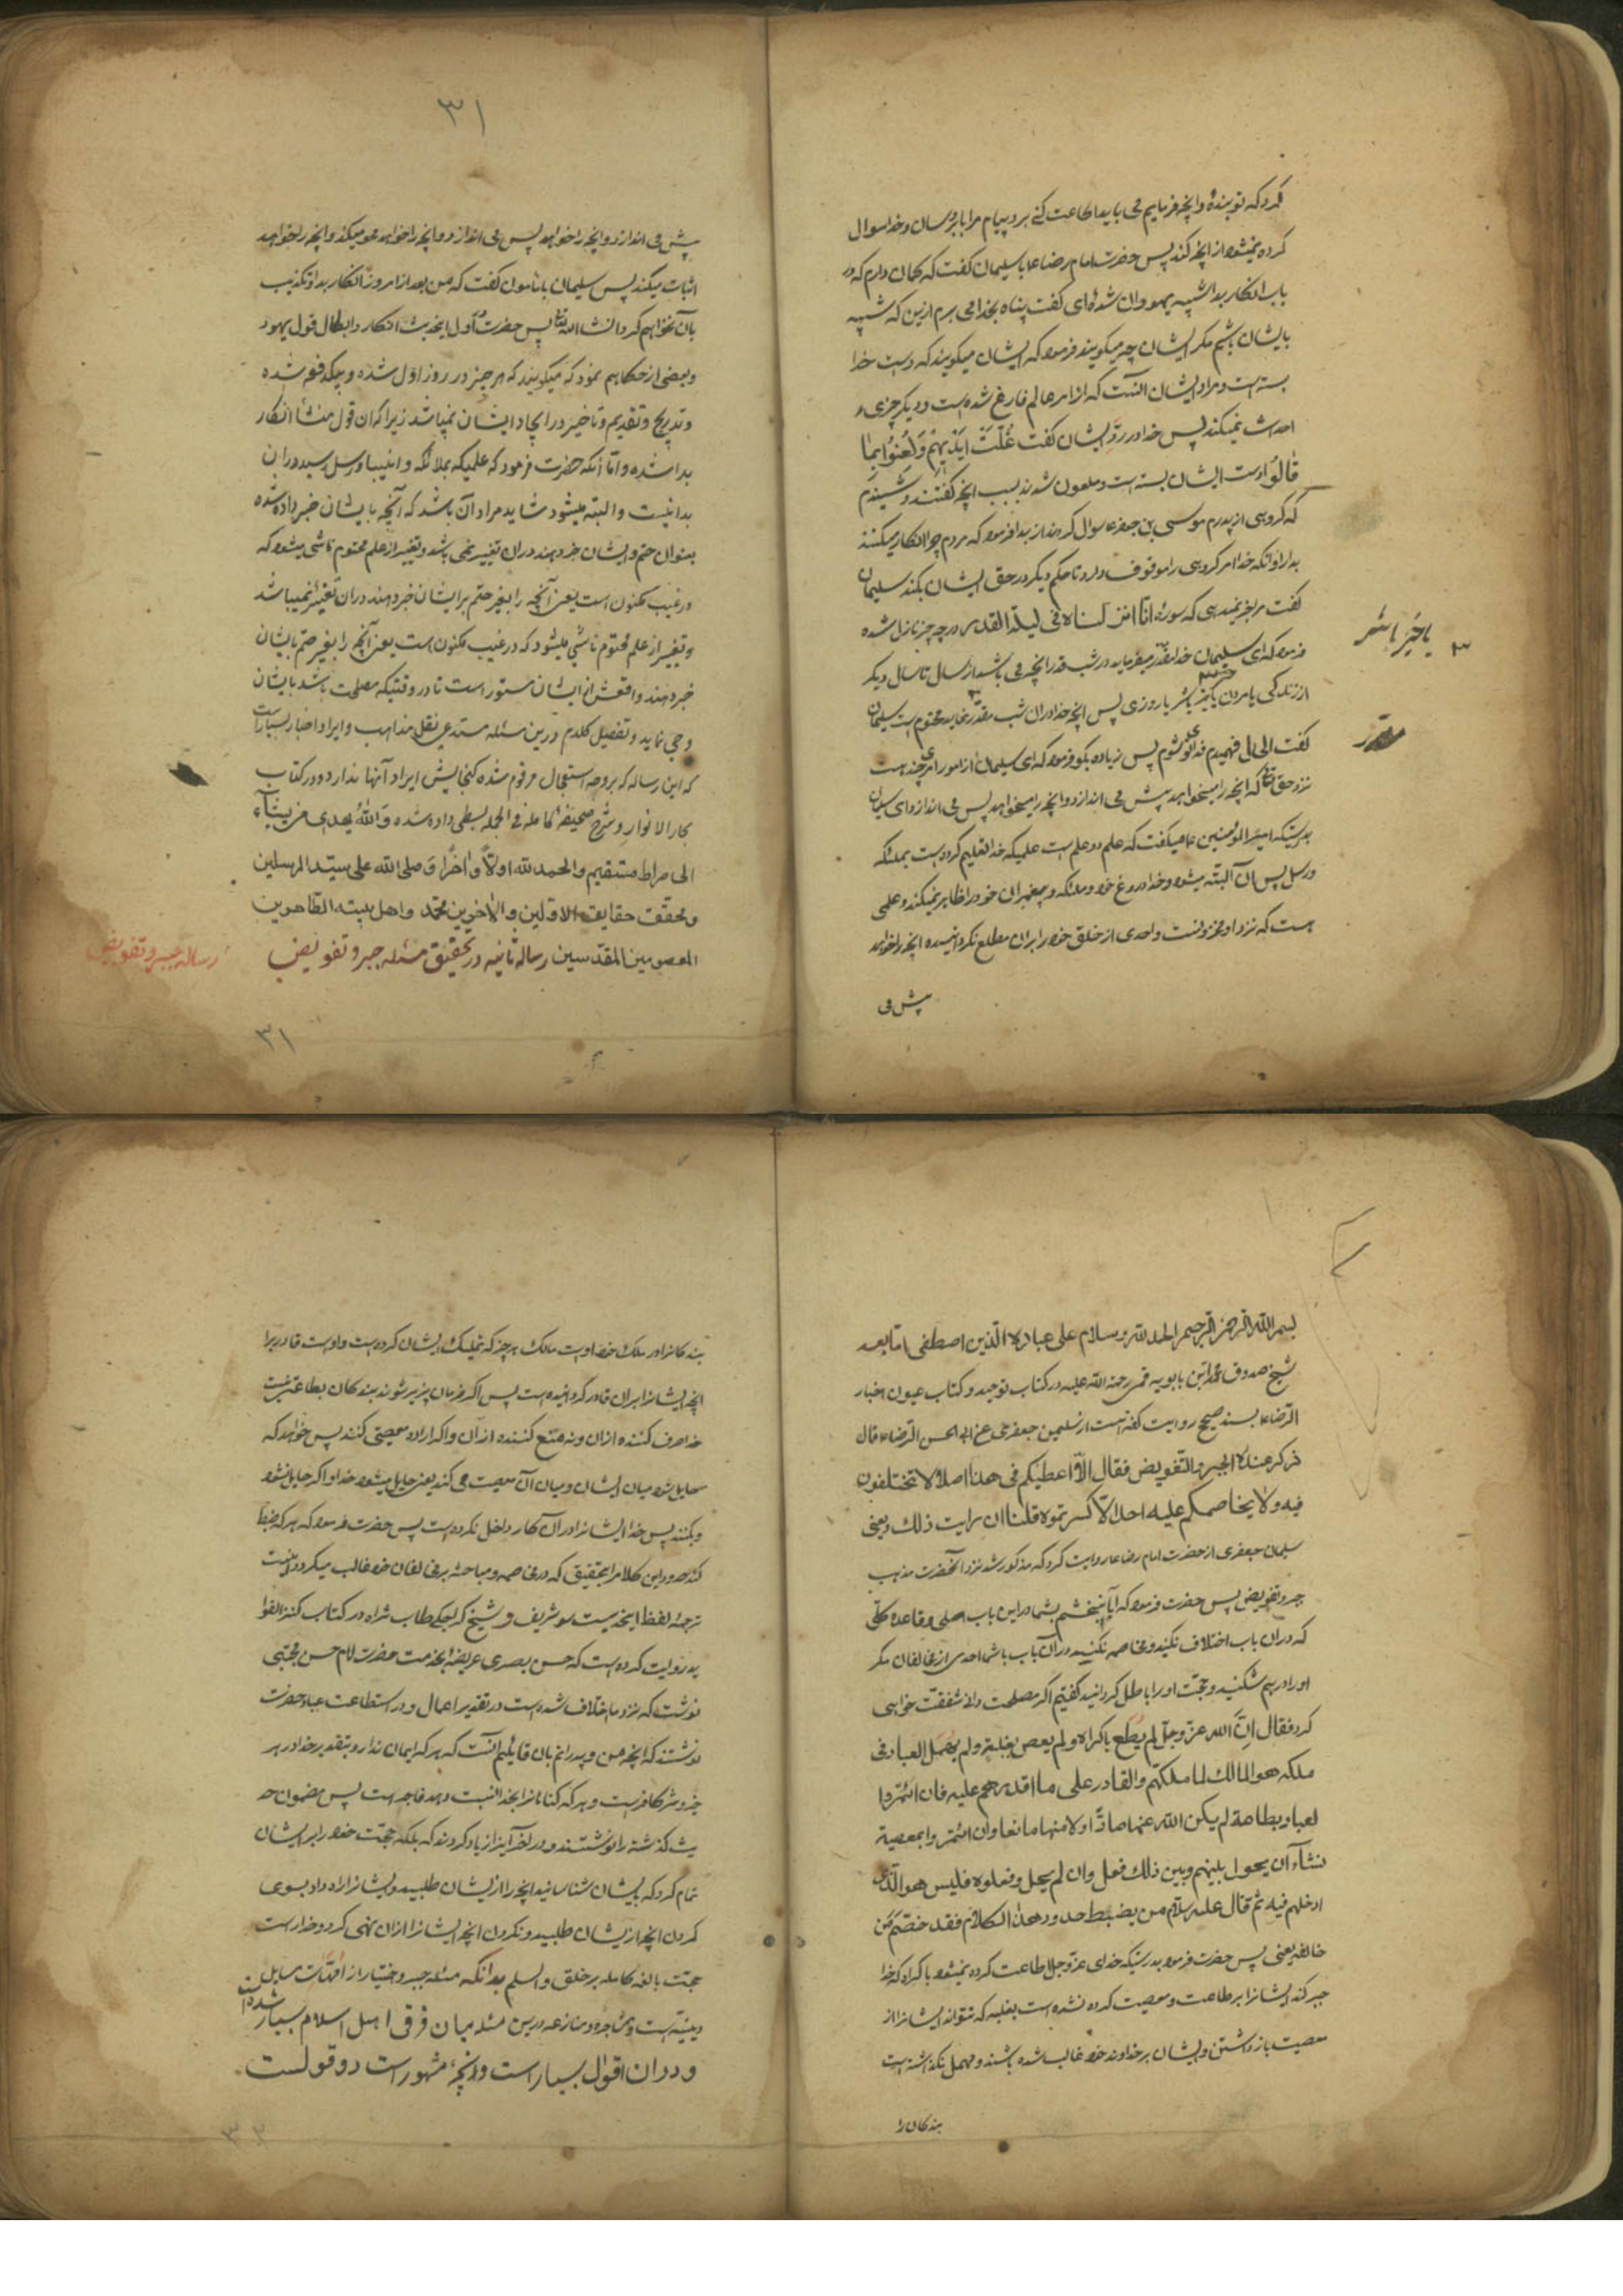 کرد که تو بنده و آنچه فرمایم می باید اطاعت کنی برو پیام مرا باو برسان و خدا سوال
کرده نمیشود از آنچه کند پس حضرت امام رضا ع با سلیمان گفت که کمان دارم که در
باب انکار بدا شبیه یهودان شده‌ای گفت پناه بخدا می برم ازین که شبیه
بایشان باشم مکر ایشان چه میکویند فرمود که ایشان میکویند که دست خدا
بسته است و مراد ایشان آنست که از امر عالم فارغ شده است و دیکر چیزی
احداث نمیکند پس خدا در رد ایشان گفت غُلَّتْ اَیْدِیهِمْ وَلُعِنُوا بِمٰا
قٰالُوا دست ایشان بسته است و ملعون شدند بسبب آنچه گفتند و شنیدم
که کروهی از پدرم موسی بن جعفر ع سوال کردند از بدا فرمود که مردم چرا انکار میکنند
بدا را و آنکه خدا امر کروهی را موقوف دارد تا حکم دیکر در حق ایشان بکند سلیمان
گفت مرا خبر نمیدهی که سورۀ انا انزلناه فی لیلة القدر در چه چیز نازل شده
فرمود که ای سلیمان خدا مقدر میفرماید در شب قدر آنچه می باشد از سال تا سال دیکر
از زندکی یا مردن یا خیر یا شر یا روزی پس آنچه خدا در آن شب مقدر نماید محتوم است سلیمان
یا خیر یا شر
۳
گفت الحال فهمیدم فدای تو شوم پس زیاده بکو فرمود که ای سلیمان از امور امری چند هست
نزد حق تعالی که آنچه را میخواهد پیش می اندازد و آنچه را میخواهد پس می اندازد ای سلیمان
بدرستیکه امیر المؤمنین ع میکفت که علم دو علم است علمیکه خدا تعلیم کرده است بملئکه
و رسل پس آن البته میشود و خدا دروغ خود و ملئکه و پیغمبران خود را ظاهر نمیکند و علمی
هست که نزد او مخزونست و احدی از خلق خود را بران مطلع نکردانیده آنچه را خواهد
پیش می
۳۱
پیش می اندازد و آنچه را خواهد پس می اندازد و آنچه را خواهد محو میکند و آنچه را خواهد
اثبات میکند پس سلیمان با مأمون گفت که من بعد از امروز انکار بدا و تکذیب
بآن نخواهم کرد انشاء الله تعالی پس حضرت اول ایحدیث انکار و ابطال قول یهود
و بعضی از حکما هم نمود که میکویند که هر چیز در روز اول شده و بیکدفعه شده
و تدریج و تقدیم و تاخیر در ایجاد ایشان نمیباشد زیرا که ان قول منشأ انکار
بدا شده و اما آنکه حضرت فرمود که علمیکه بملائکه و انبیا و رسل رسید در ان
بدا نیست و البته میشود شاید مراد آن باشد که آنچه بایشان خبر داده شده
بعنوان حتم و ایشان خبر دهند دران تغییر نمی باشد و تغییر از علم محتوم ناشی میشود که
در غیب مکنون است یعنی آنچه را بغیر حتم برایشان خبر دهند دران تغییر نمیباشد
و تغییر از علم محتوم ناشی میشود که در غیب مکنون است یعنی آنچه را بغیر حتم بایشان
خبر دهند و اقعش از ایشان مستور است تا در وقتیکه مصلحت باشد بایشان
وحی نماید و تفصیل کلام درین مسئله مستدعی نقل مذاهب و ایراد اخبار بسیار است
که این رساله که بر وجه استعجال مرقوم شده کنجایش ایراد آنها ندارد و در کتاب
بحار الانوار و شرح صحیفۀ کامله فی الجمله بسطی داده شده وَاللهُ یهدی من یشآء
الی صراط مستقیم والحمد لله اولاً و اٰخراً وَ صلی الله علی سیّد المرسلین
و محقّق حقایق الاولین والاٰخرین محمّد واهل بیته الطاهرین
المعصومین المقدّسین رساله ثانیه در تحقیق مسئله جبر و تفویض
رساله جبر و تفویض
۳۱
بسم الله الرحمن الرحیم الحمد لله وسلام علی عباده الذین اصطفی اما بعد
شیخ صدوق محمد ابن بابویه قمی رحمة الله علیه در کتاب توحید و کتاب عیون اخبار
الرضا ع بسند صحیح روایت کفته است از سلیمن جعفری عن ابی الحسن الرضا ع قال
ذکر عنده الجبر والتفویض فقال الا اعطیکم فی هذا اصلاً لا تختلفون
فیه ولا یخاصمکم علیه احد الّا کسرتموه قلنا ان رایت ذلک و یعنی
سلیمان جعفری از حضرت امام رضا ع روایت کرد که مذکور شد نزد آنحضرت مذهب
جبر و تفویض پس حضرت فرمود که آیا نبخشم بشما در این باب اصلی و قاعده کلّی
که دران باب اختلاف نکنید و مخاصمه نکنید دران باب با شما احدی از مخالفان مکر
او را درهم شکنید و حجت او را باطل کردانید کفتیم اکر مصلحت دانی شفقت خواهی
کرد فقال اِنَّ الله عزّ وجلّ لم یُطَع باکراه ولم یعص بغلبة ولم یهمل العباد فی
ملکه هو المالک لما ملکهم والقادر علی ما اقدرهم علیه فان ائتمروا
العباد بطاعة لم یکن الله عنها صادّاً ولا منها مانعاً وان ائتمروا بمعصیة
فشآء ان یحول بینهم وبین ذلک فعل وان لم یحل وفعلوه فلیس هو الّذی
ادخلهم فیه ثم قال علیه سلام من یضبط حدود هذا الکلام فقد خصم مَن
خالفه یعنی پس حضرت فرمود بدرستیکه خدای عزّ وجلّ اطاعت کرده نمیشود باکراه که خدا
جبر کند ایشانرا بر طاعت و معصیت کرده نشده است بغلبه که نتواند ایشانرا از
معصیت باز داشتن و ایشان بر خداوند خود غالب شده باشند و مهمل نکذاشته است
بندکان را
بندکانرا در ملک خود اوست مالک هر چیز که تملیک ایشان کرده است و اوست قادر برا
آنچه ایشانرا بران قادر کردانیده است پس اکر فرمان پذیر شوند بندکان بطاعتی نیست
خدا صرف کننده ازان و نه منع کننده از آن و اکر اراده معصیتی کنند پس خواهد که
حایل شود میان ایشان و میان آن معصیت می کند یعنی حایل میشود خدا و اکر حایل نشود
و بکنند پس خدا ایشانرا دران کار داخل نکرده است پس حضرت فرمود که هر که ضبط
کند حدود این کلام را بتحقیق که در مخاصمه و مباحثه بر مخالفان خود غالب میکردد اینست
ترجمۀ لفظ ایحدیث شریف و شیخ کراجکی طاب ثراه در کتاب کنز الفوا
ید روایت کرده است که حسن بصری عریضۀ بخدمت حضرت امام حسن مجتبی
نوشت که نزد ما اختلاف شده است در تقدیر اعمال و در استطاعت عباد حضرت
نوشتند که آنچه من و پدرانم بان قایلیم آنست که هر که ایمان ندارد بتقدیر خدا در هر
خیر و شر کافر است و هر که کناهانرا بخدا نسبت دهد فاجر است پس مضمون حد
یث کذشته را نوشتند و در آخر آن زیاد کردند که بلکه حجّت خود را بر ایشان
تمام کرد که بایشان شناسانید آنچه را از ایشان طلبید و ایشانرا راه داد بسوی
کردن آنچه از ایشان طلبید و نکردن آنچه ایشانرا ازان نهی کرد و خدا راست
حجّت بالغۀ کامله بر خلق والسلم بدانکه مسئله جبر و اختیار از امهات مسایل
دینیّه است و مشاجره و منازعه درین مسئله میان فرق اهل اسلام بسیار شده است
و دران اقوال بسیار است و آنچه مشهور است دو قولست
۳۳